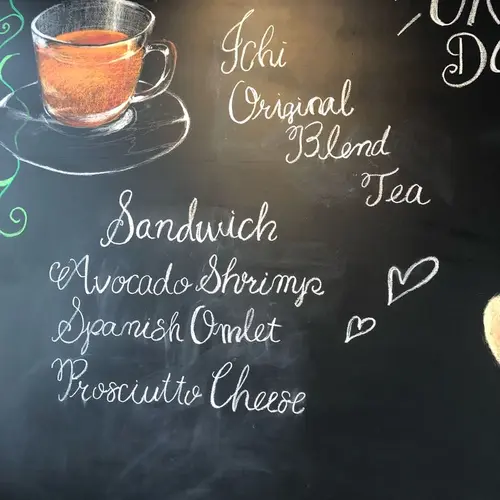 Ichi
Original
Blend
Tea
Sandwich
Avocado Shrimp
Spanish Omlet
Prosciutto Cheese